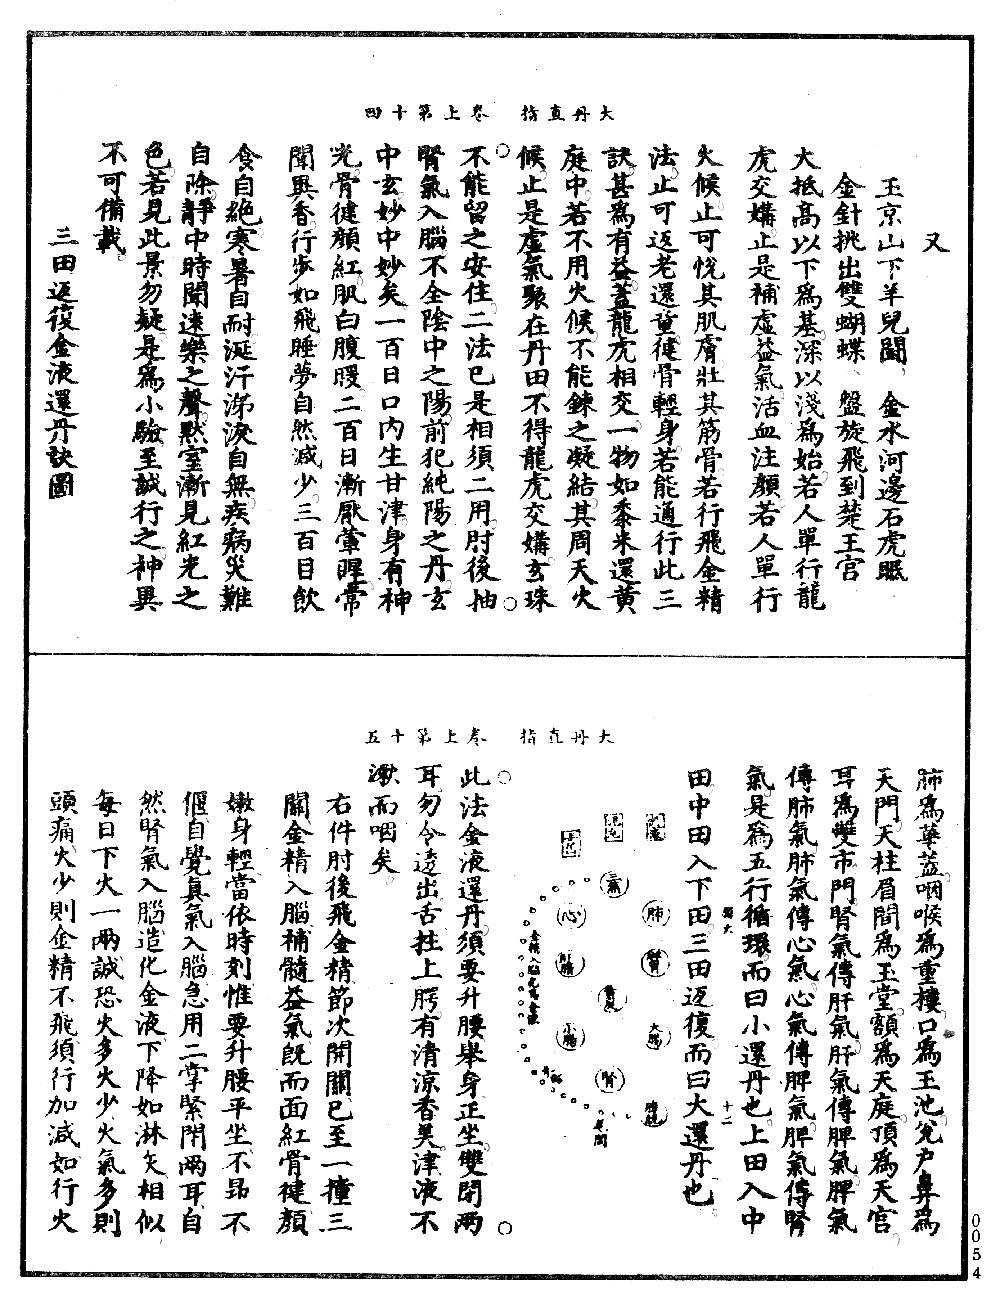 大丹直指　卷上第十四
又
玉京山下羊兒鬭　金水河邊石虎眠
金針挑出雙蝴蝶　盤旋飛到楚王宮
大抵高以下爲基深以淺爲始若人單行龍
虎交媾止是補虛益氣活血注顏若人單行
火候止可悅其肌膚壯其筋骨若行飛金精
法止可返老還童健骨輕身若能通行此三
訣甚爲有益蓋龍虎相交一物如黍米還黄
庭中若不用火候不能鍊之凝結其周天火
候止是虛氣聚在丹田不得龍虎交媾玄珠
不能留之安住二法巳是相須二用肘後抽
腎氣入腦不全陰中之陽前犯純陽之丹玄
中玄妙中妙矣一百日口内生甘津身有神
光骨健顏紅肌白腹暖二百日漸厭葷腥常
聞異香行步如飛睡夢自然減少三百日飲
食自絶寒暑自耐涎汗涕淚自無疾病災難
自除靜中時聞遠樂之聲默室漸見紅光之
色若見此景勿疑是爲小驗至誠行之神異
不可備載
三田返復金液還丹訣圖
大丹直指　卷上第十五
肺爲華蓋咽喉爲重樓口爲玉池兌户鼻爲
天門天柱眉間爲玉堂額爲天庭頂爲天宮
耳爲雙市門腎氣傳肝氣肝氣傳脾氣脾氣
傳肺氣肺氣傳心氣心氣傳脾氣脾氣傳腎
氣是爲五行循環而曰小還丹也上田入中
田中田入下田三田返復而曰大還丹也
肺
腎
大腸
膀胱
心
小腸
腎
尾閭
此法金液還丹須要升腰舉身正坐雙閉兩
耳勿令透出舌拄上腭有清涼香美津液不
漱而咽矣
右件肘後飛金精節次開關已至一撞三
關金精入腦補髓益氣既而面紅骨健顏
嫩身輕當依時刻惟要升腰平坐不昂不
偃自覺真氣入腦急用二掌緊閉兩耳自
然腎氣入腦造化金液下降如淋灰相似
每日下火一兩誠恐火多火少火氣多則
頭痛火少則金精不飛須行加減如行火
0054